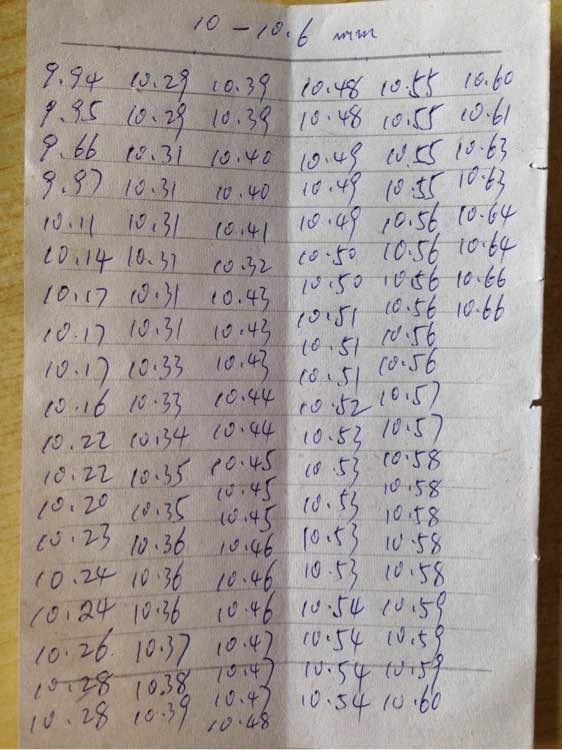 10 - 10.6 mm
9.94 10.29 10.39 10.48 10.55 10.60
9.95 10.29 10.39 10.48 10.55 10.61
9.66 10.31 10.40 10.49 10.55 10.63
9.97 10.31 10.40 10.49 10.55 10.63
10.11 10.31 10.41 10.49 10.56 10.64
10.14 10.31 10.32 10.50 10.56 10.64
10.17 10.31 10.43 10.50 10.56 10.66
10.17 10.31 10.43 10.51 10.56 10.66
10.17 10.33 10.43 10.51 10.56
10.51 10.56
10.16 10.33 10.44 10.52 10.57
10.22 10.34 10.44 10.53 10.57
10.22 10.35 10.45 10.53 10.58
10.45 10.58
10.20 10.35 10.45 10.53 10.58
10.23 10.36 10.46 10.53 10.58
10.24 10.36 10.46 10.53 10.58
10.24 10.36 10.46 10.54 10.59
10.26 10.37 10.47 10.54 10.59
10.28 10.38 10.47 10.54 10.59
10.28 10.39 10.47 10.54 10.60
10.48